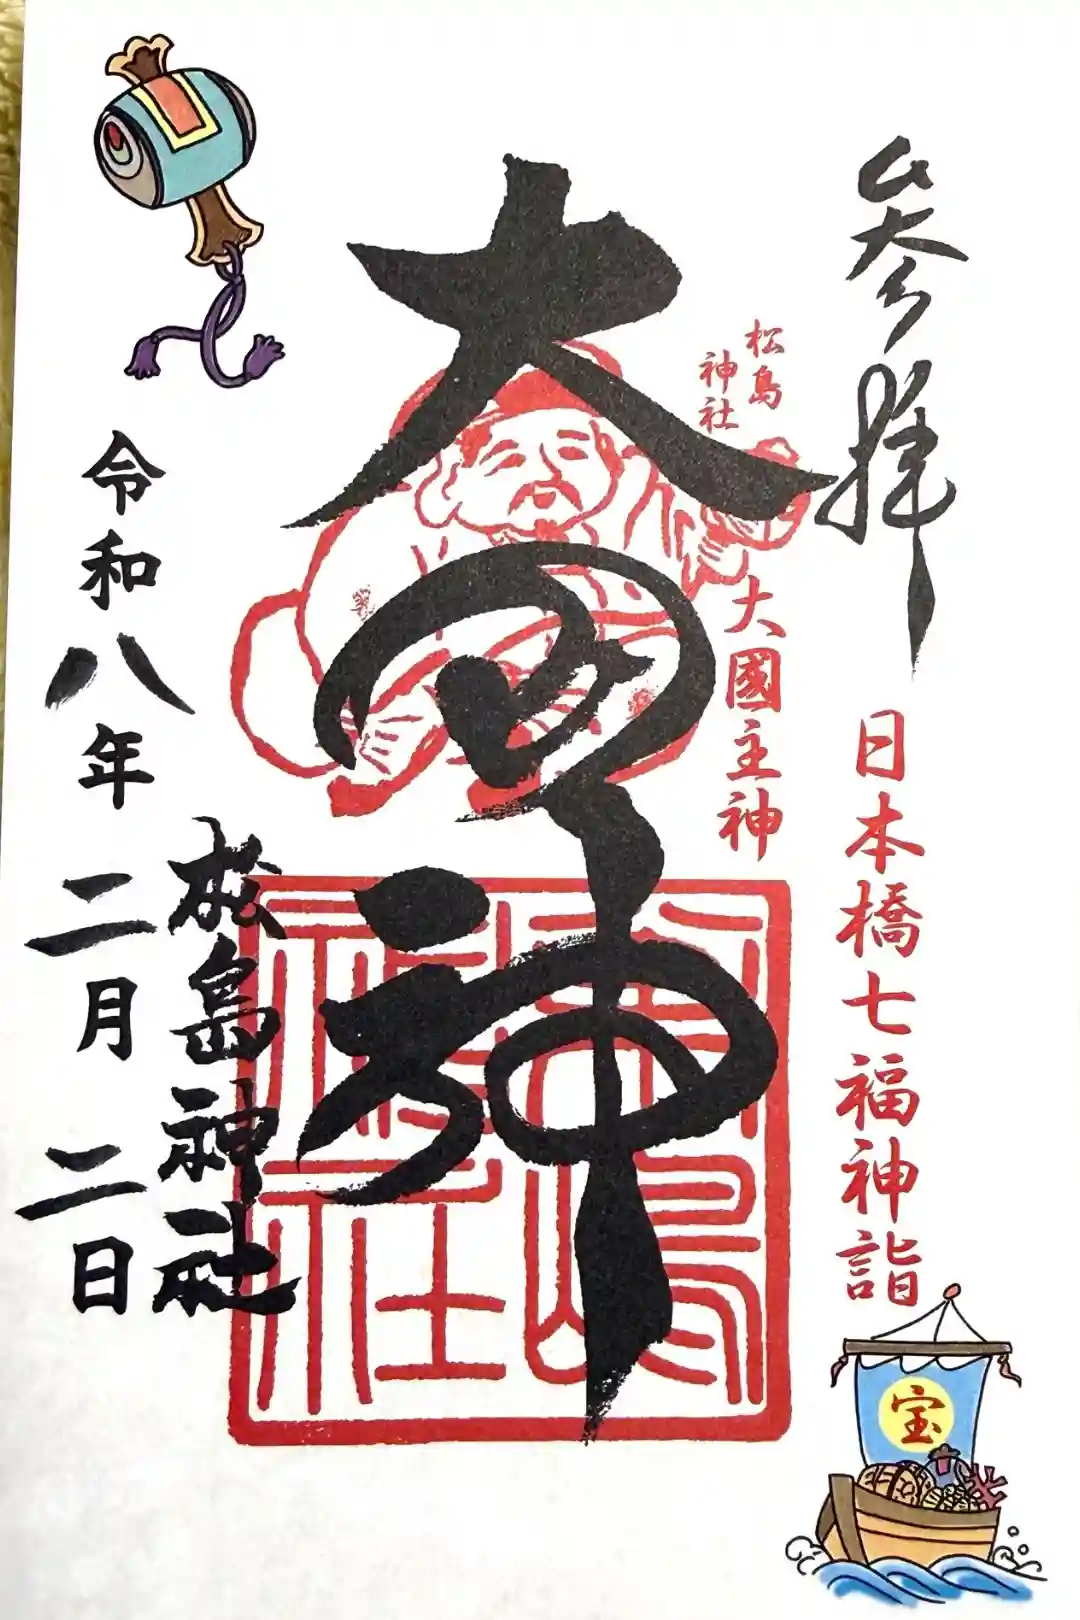 参拝
日本橋七福神詣
松島
神社
大國主神
大国神
松島神社
令和八年二月二日
宝